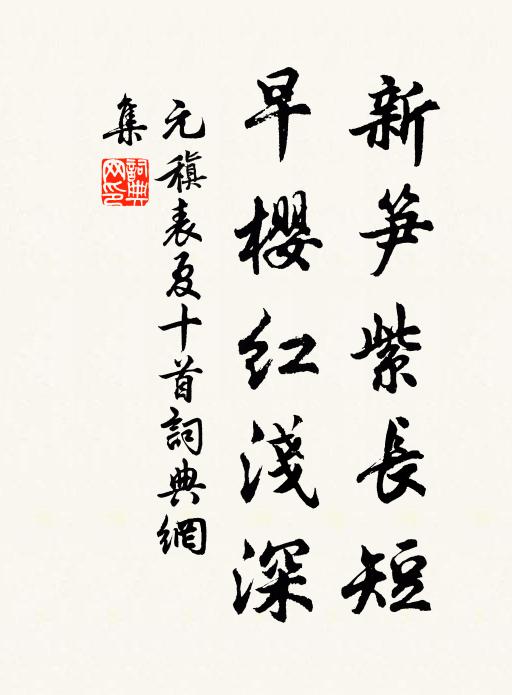 新笋紫長短
早櫻紅淺深
元稹表夏十首詞典網
集
詞典
网印